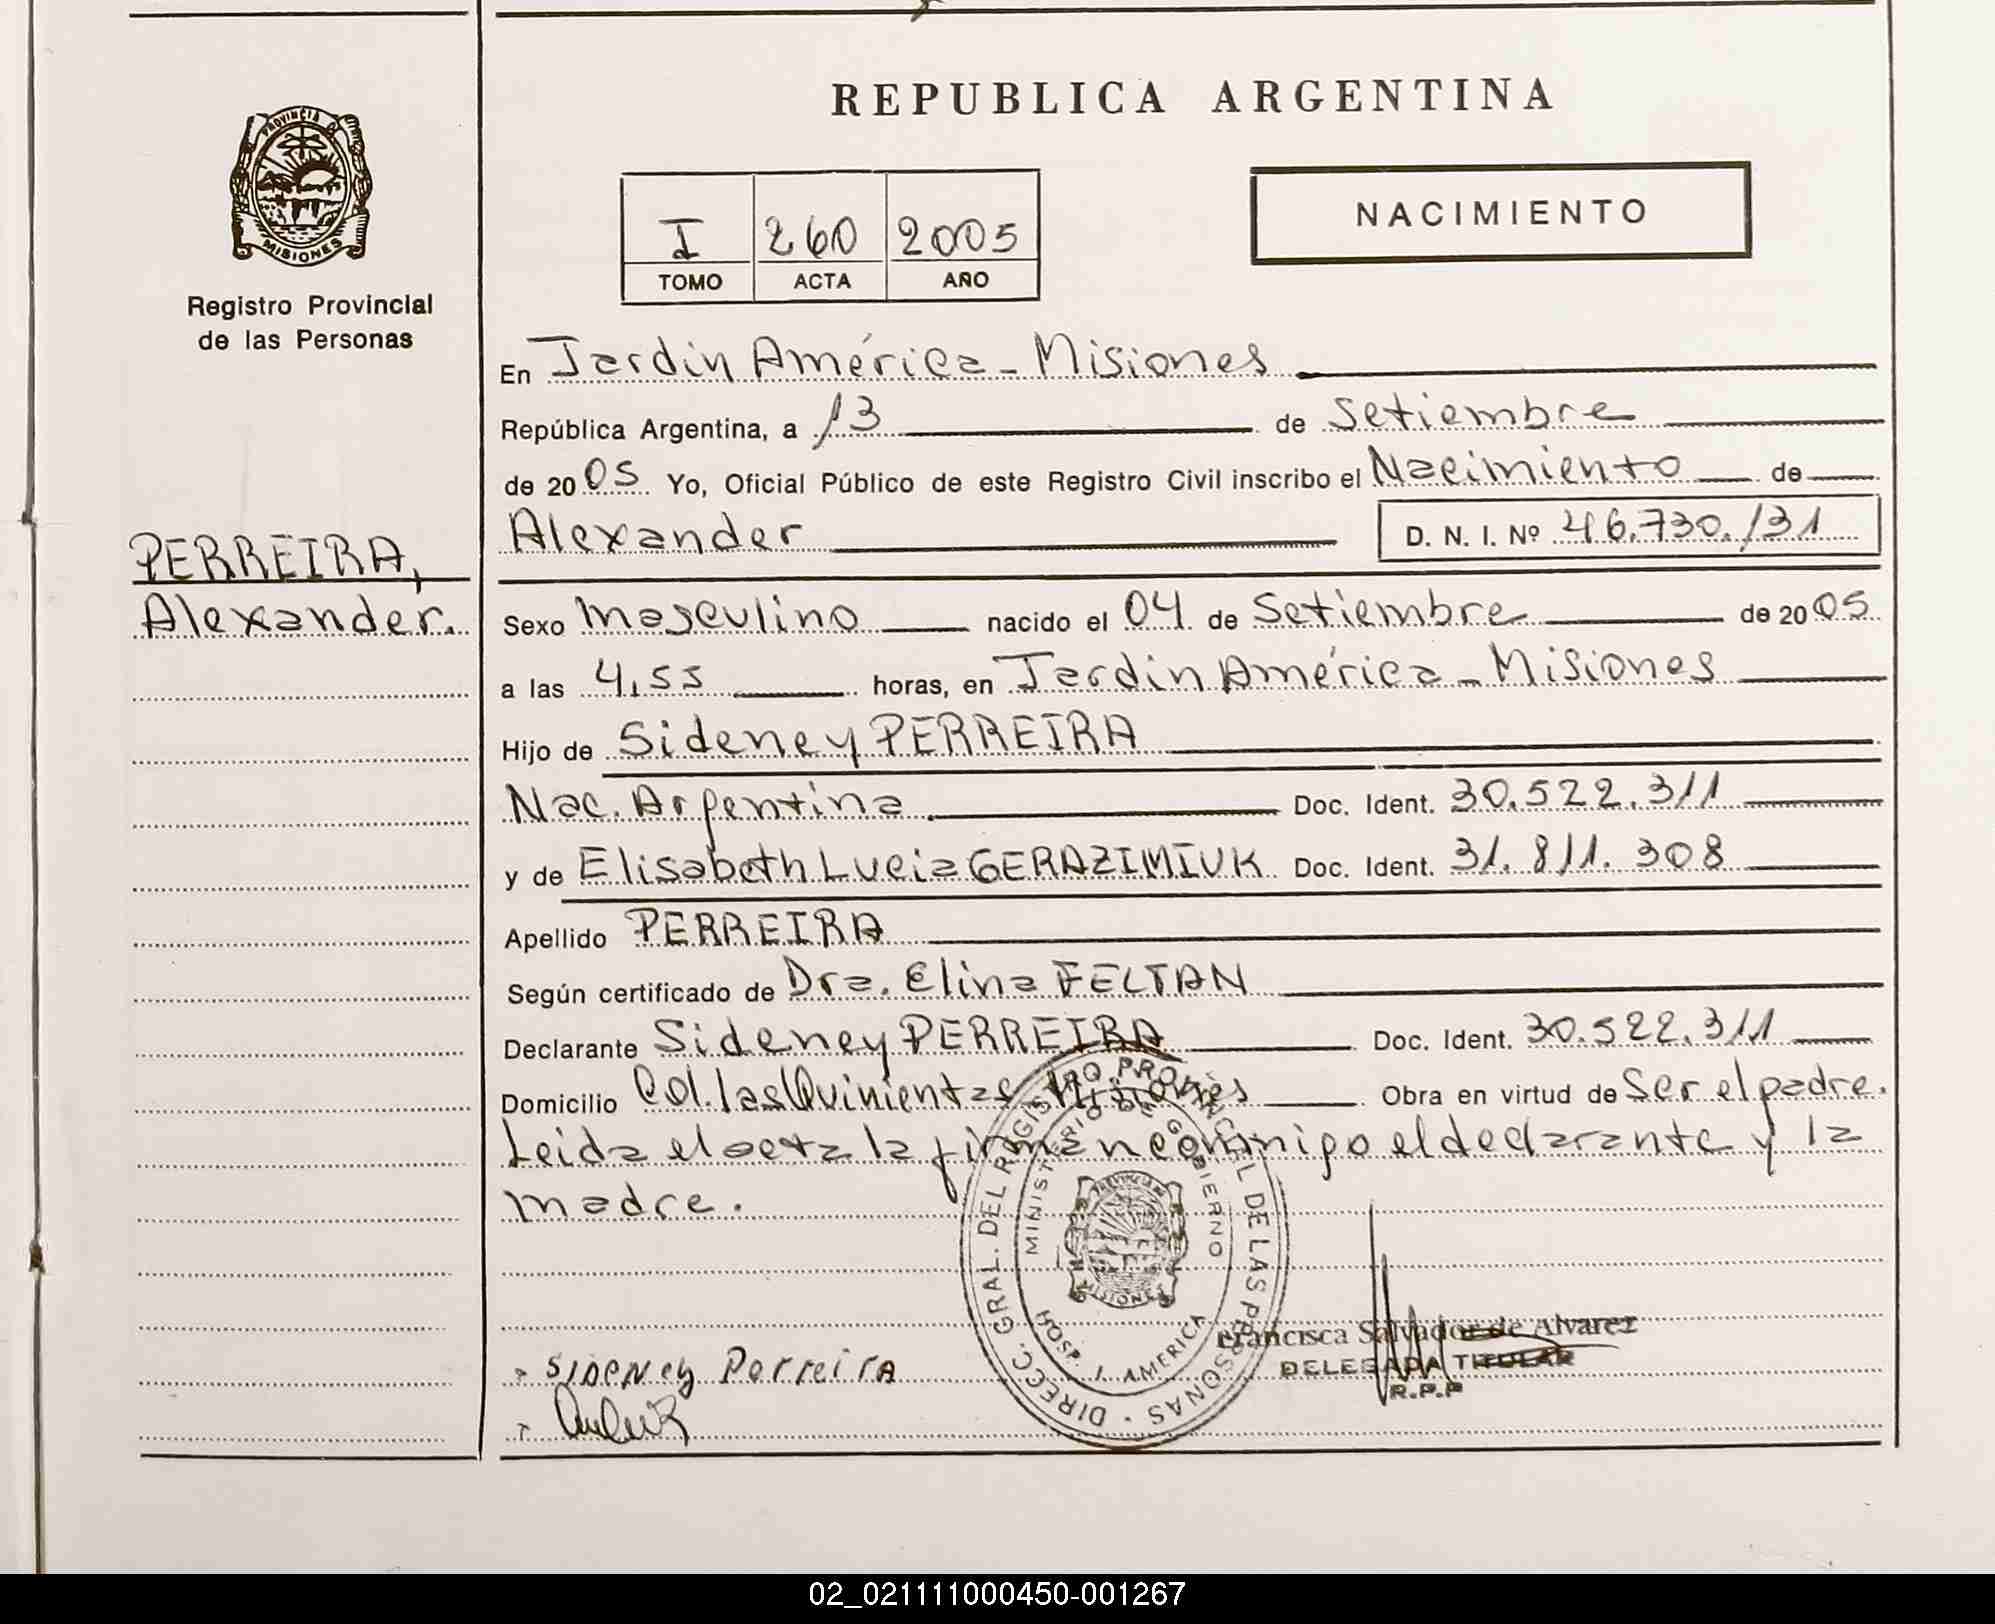 REPUBLICA ARGENTINA
PROVINCIA DE
MISIONES
Registro Provincial
de las Personas
I 260 2005
TOMO ACTA AÑO
NACIMIENTO
En Jardín América - Misiones
República Argentina, a 13 de Setiembre
de 2005 Yo, Oficial Público de este Registro Civil inscribo el Nacimiento de
Alexander D. N. I. Nº 46.730.131
PERREIRA,
Alexander.
Sexo Masculino nacido el 04 de Setiembre de 2005
a las 4,55 horas, en Jardín América - Misiones
Hijo de Sideney PERREIRA
Nac. Argentina Doc. Ident. 30.522.311
y de Elisabeth Lucia GERAZIMIUK Doc. Ident. 31.811.308
Apellido PERREIRA
Según certificado de Dra. Elina FELTAN
Declarante Sideney PERREIRA Doc. Ident. 30.522.311
Domicilio Col. las Quinientas Misiones Obra en virtud de Ser el padre.
Leida el acta la firman conmigo el declarante y la
madre.
DIRECC. GRAL. DEL REGISTRO PROVINCIAL DE LAS PERSONAS
MINISTERIO DE GOBIERNO
MISIONES
HOSP. J. AMERICA
Francisca Salvador de Alvarez
DELEGADA TITULAR
R.P.P
SIDENEY Perreira
02_021111000450-001267